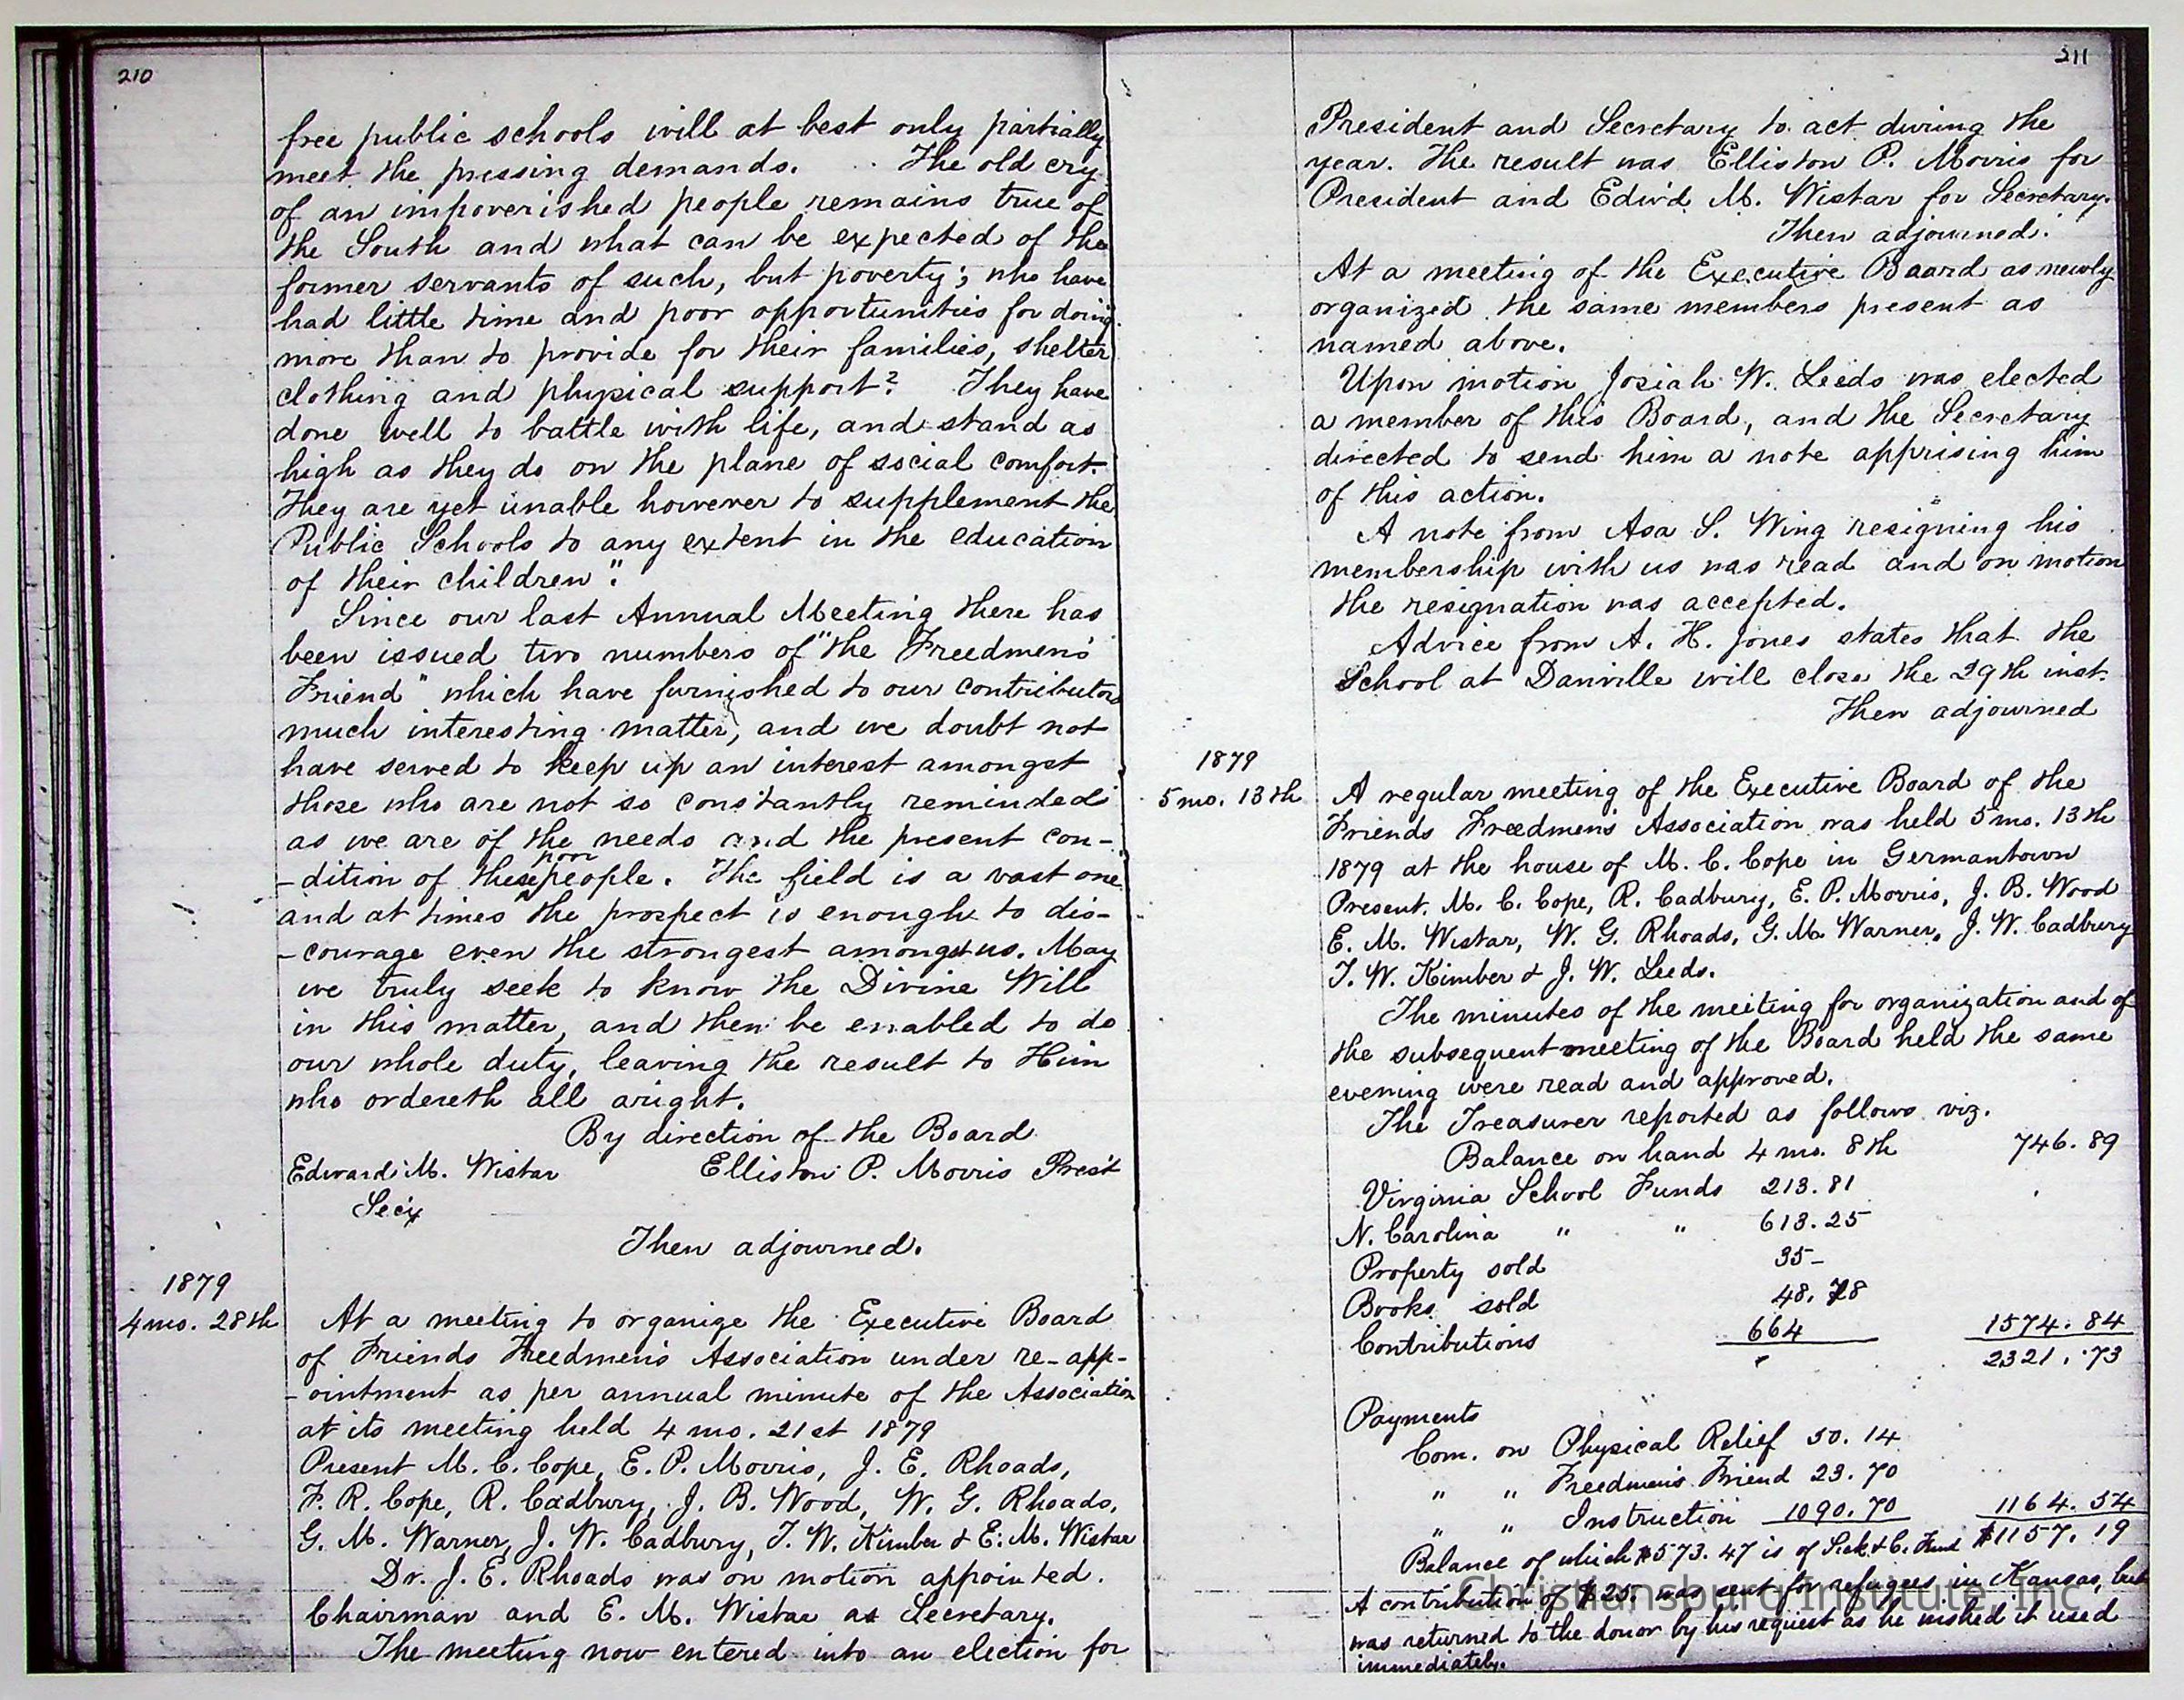 210
free public schools will at best only partially
meet the pressing demands. . . The old cry
of an impoverished people remains true of
the South and what can be expected of the
former servants of such, but poverty; who have
had little time and poor opportunities for doing
more than to provide for their families, shelter
clothing and physical support? They have
done well to battle with life, and stand as
high as they do on the plane of social comfort.
They are yet unable however to supplement the
Public Schools to any extent in the education
of their children".
Since our last Annual Meeting there has
been issued two numbers of "the Freedmen's
Friend" which have furnished to our contributors
much interesting matter, and we doubt not
have served to keep up an interest amongst
those who are not so constantly reminded
as we are of the needs and the present con-
-dition of these poor people. The field is a vast one
and at times the prospect is enough to dis-
-courage even the strongest amongst us. May
we truly seek to know the Divine Will
in this matter, and then be enabled to do
our whole duty, leaving the result to Him
who ordereth all aright.
By direction of the Board
Edward M. Wistar Elliston P. Morris Pres't
Sec'y
Then adjourned.
1879
4 mo. 28th At a meeting to organize the Executive Board
of Friends Freedmen's Association under re-app-
-ointment as per annual minute of the Association
at its meeting held 4 mo. 21st 1879
Present M. C. Cope, E. P. Morris, J. E. Rhoads,
F. R. Cope, R. Cadbury, J. B. Wood, W. G. Rhoads,
G. M. Warner, J. W. Cadbury, T. W. Kimber & E. M. Wistar
Dr. J. E. Rhoads was on motion appointed
Chairman and E. M. Wistar as Secretary.
The meeting now entered into an election for
211
President and Secretary to act during the
year. The result was Elliston P. Morris for
President and Edw'd M. Wistar for Secretary.
Then adjourned.
At a meeting of the Executive Board as newly
organized the same members present as
named above.
Upon motion Josiah W. Leeds was elected
a member of this Board, and the Secretary
directed to send him a note apprising him
of this action.
A note from Asa S. Wing resigning his
membership with us was read and on motion
the resignation was accepted.
Advice from A. H. Jones states that the
School at Danville will close the 29th inst.
Then adjourned
1879
5 mo. 13th A regular meeting of the Executive Board of the
Friends Freedmen's Association was held 5 mo. 13th
1879 at the house of M. C. Cope in Germantown
Present. M. C. Cope, R. Cadbury, E. P. Morris, J. B. Wood
E. M. Wistar, W. G. Rhoads, G. M. Warner, J. W. Cadbury
T. W. Kimber & J. W. Leeds.
The minutes of the meeting for organization and of
the subsequent meeting of the Board held the same
evening were read and approved.
The Treasurer reported as follows viz.
Balance on hand 4 mo. 8th 746.89
Virginia School Funds 213.81
N. Carolina " " 613.25
Property sold 35-
Books sold 48.78
Contributions 664 1574.84
2321.73
Payments
Com. on Physical Relief 50.14
" " Freedmen's Friend 23.70
" " Instruction 1090.70 1164.54
Balance of which $573.47 is of S.ch. & C. Fund $1157.19
A contribution of $25. was sent for refugees in Kansas, but
was returned to the donor by his request as he wished it used
immediately.
Christiansburg Institute, Inc